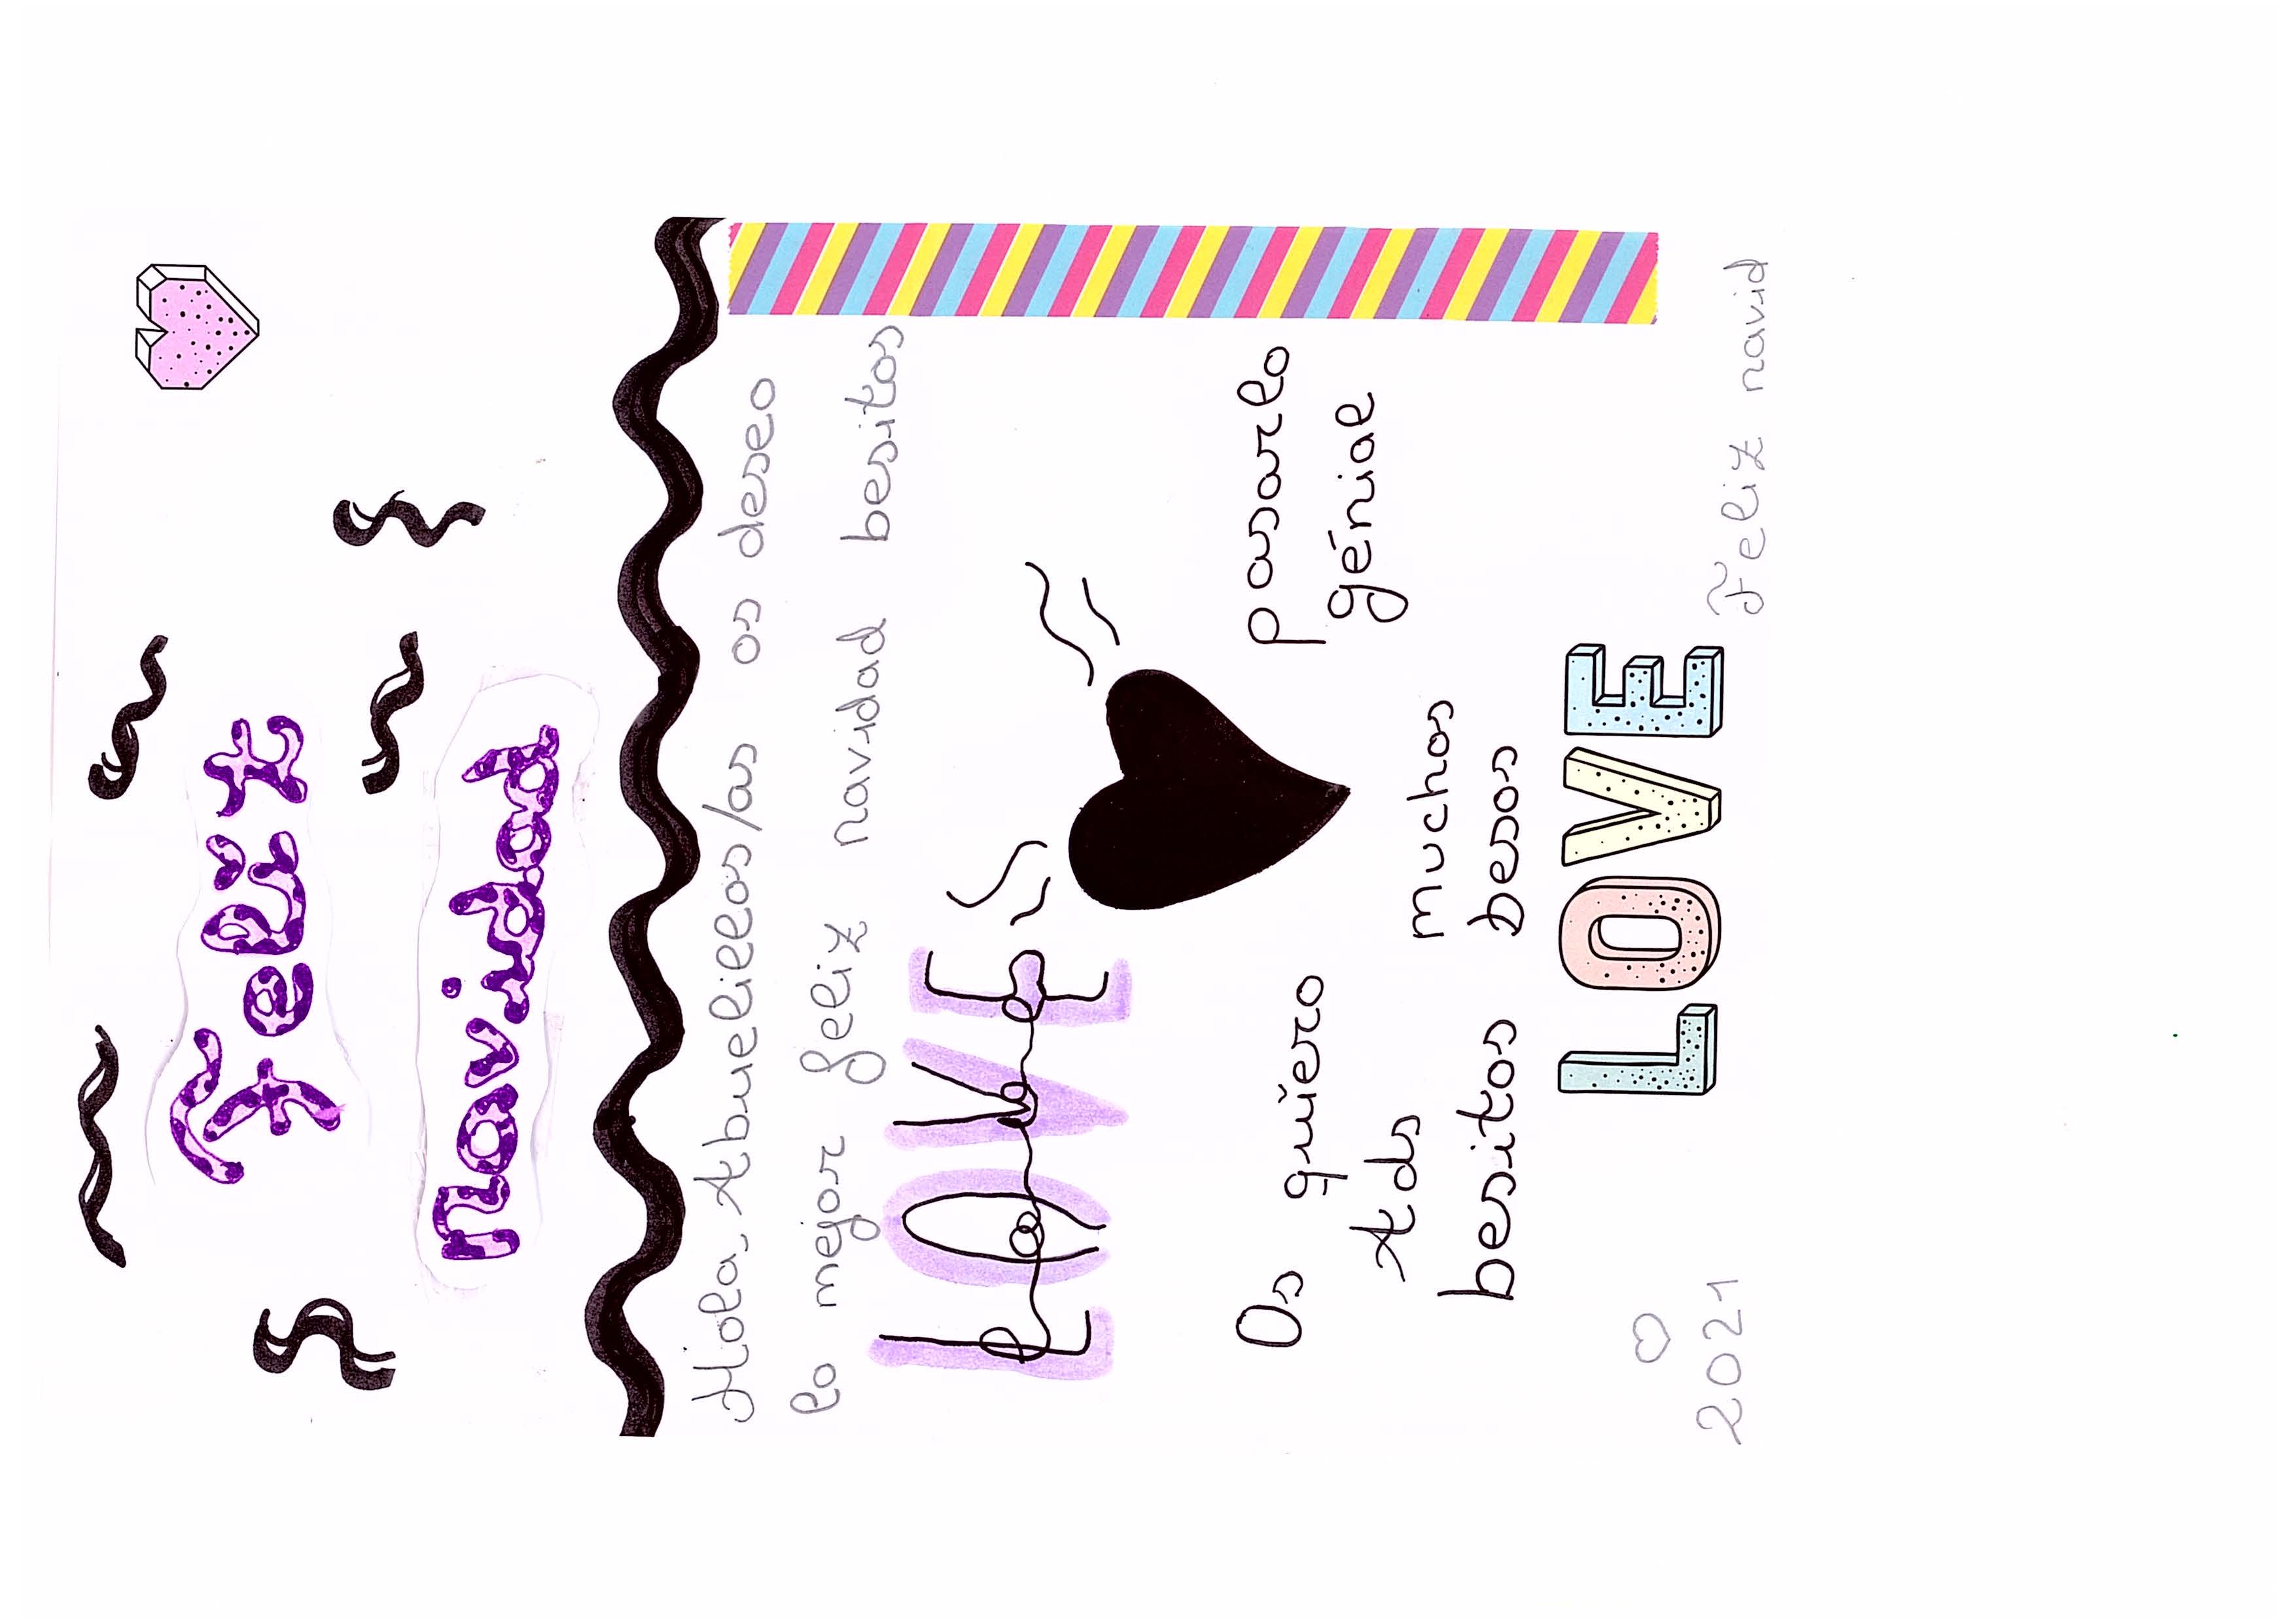 Feliz
navidad
Hola, Abuelillos/as os deseo
lo mejor feliz navidad besitos
LOVE
Os quiero pasarlo
A tds muchos génial
besitos besos
LOVE
2021 Feliz navid